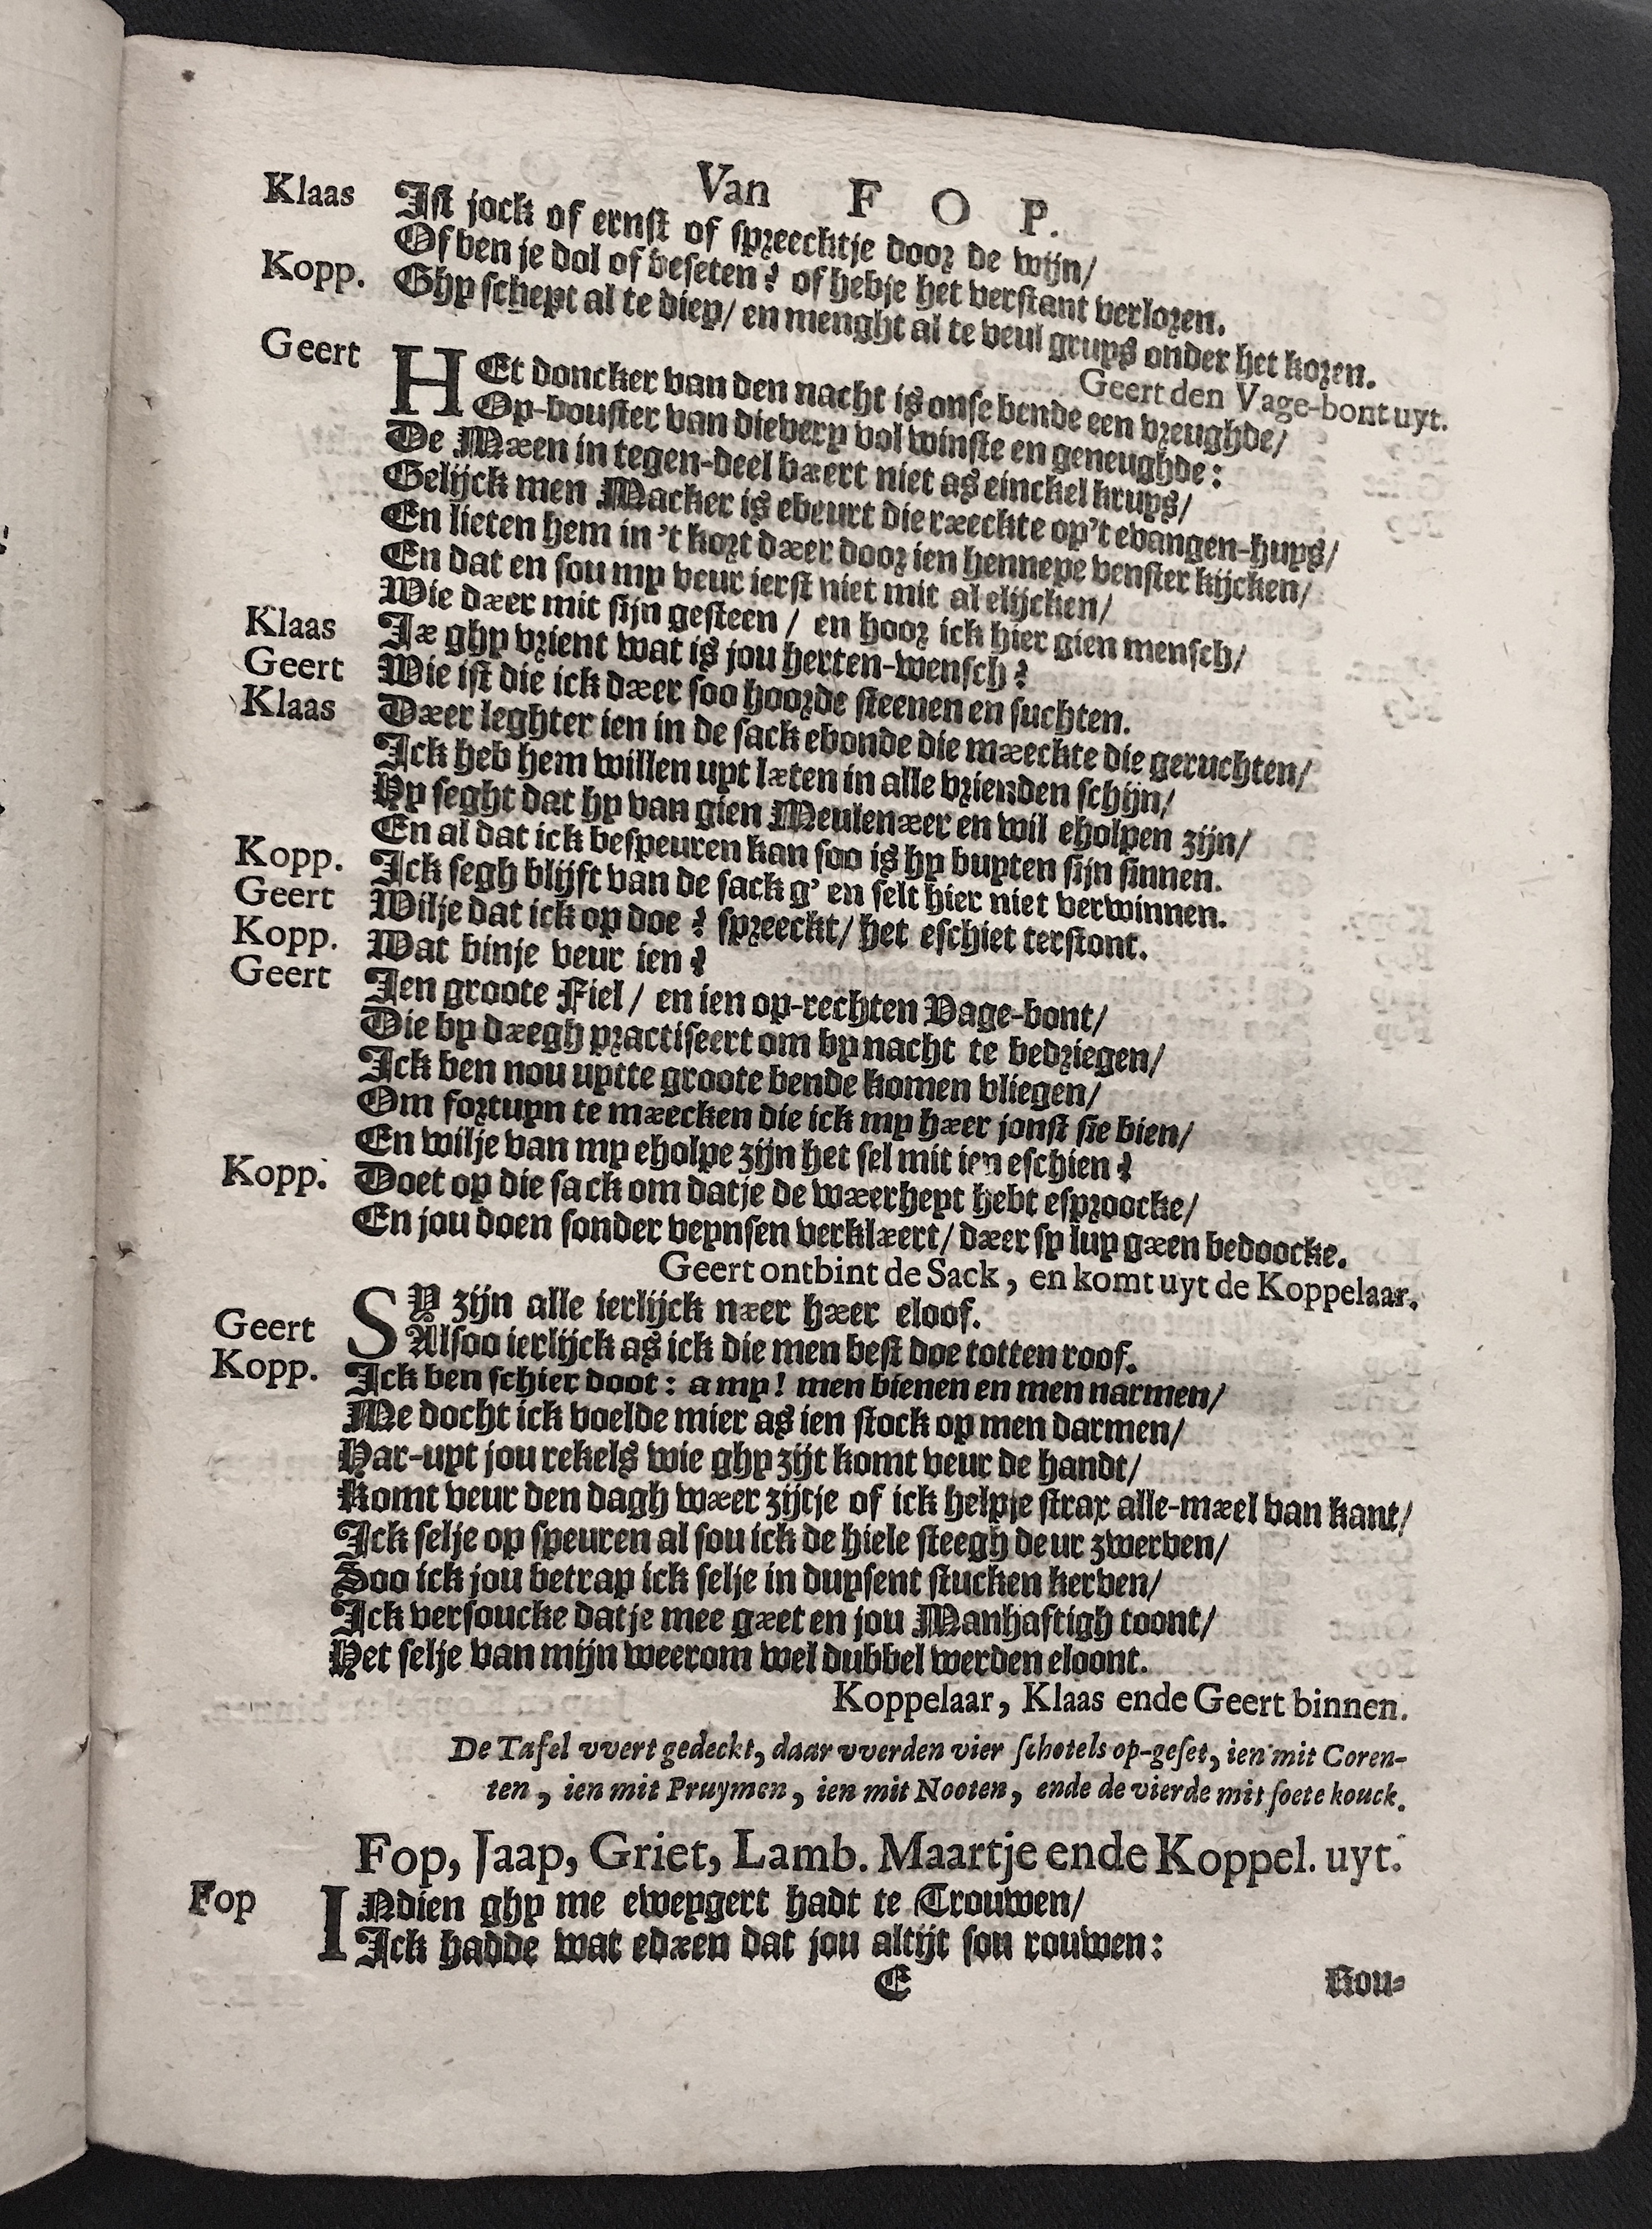 Van F O P.
Klaas Ist jock of ernst of spreecktje door de wijn/
Of ben je dol of beseten? of hebje het verstant verloren.
Kopp. Ghy schept al te diep/ en menght al te veul gruys onder het koren.
Geert den Vage-bont uyt.
Geert HEt doncker van den nacht is onse bende een vreughde/
Op-vouster van dievery vol winste en geneughde:
De Mæen in tegen-deel bært niet as einckel kruys/
Gelijck men Macker is ebeurt die ræeckte op't evangen-huys/
En lieten hem in 't kort dæer door ien hennepe venster kijcken/
En dat en sou my veur ierst niet mit al elijcken/
Wie dæer mit sijn gesteen / en hoor ick hier gien mensch/
Klaas Jæ ghy vrient wat is jou herten-wensch?
Geert Wie ist die ick dæer soo hoorde steenen en suchten.
Klaas Dæer leghter ien in de sack ebonde die mæeckte die geruchten/
Ick heb hem willen uyt læten in alle vrienden schijn/
Hy seght dat hy van gien Meulenæer en wil eholpen zijn/
En al dat ick bespeuren kan soo is hy buyten sijn sinnen.
Kopp. Ick segh blijft van de sack g' en selt hier niet verwinnen.
Geert Wilje dat ick op doe? spreeckt/ het eschiet terstont.
Kopp. Wat binje veur ien?
Geert Ien groote Fiel/ en ien op-rechten Vage-bont/
Die by dægh practiseert om by nacht te bedriegen/
Ick ben nou uytte groote bende komen vliegen/
Om fortuyn te mæecken die ick my hæer jonst sie bien/
En wilje van my eholpe zijn het sel mit ien eschien?
Kopp. Doet op die sack om datje de wæerheyt hebt esproocke/
En jou doen sonder veynsen verklæert/ dæer sy luy gæen bedoocke.
Geert ontbint de Sack, en komt uyt de Koppelaar.
SY zijn alle ierlijck næer hæer eloof.
Geert Alsoo ierlijck as ick die men best doe totten roof.
Kopp. Ick ben schier doot: a my! men bienen en men narmen/
Me docht ick voelde mier as ien stock op men darmen/
Har-uyt jou rekels wie ghy zijt komt veur de handt/
Komt veur den dagh wæer zijtje of ick helpje strax alle-mæel van kant/
Ick selje op speuren al sou ick de hiele steegh deur zwerven/
Soo ick jou betrap ick selje in duysent stucken kerven/
Ick versoucke datje mee gæet en jou Manhaftigh toont/
Het selje van mijn weerom wel dubbel werden eloont.
Koppelaar, Klaas ende Geert binnen.
De Tafel vvert gedeckt, daar vverden vier schotels op-geset, ien mit Coren-
ten, ien mit Pruymen, ien mit Nooten, ende de vierde mit soete kouck.
Fop, Jaap, Griet, Lamb. Maartje ende Koppel. uyt.
Fop INdien ghy me eweygert hadt te Trouwen/
Ick hadde wat edæen dat jou altijt sou rouwen:
E Rou-